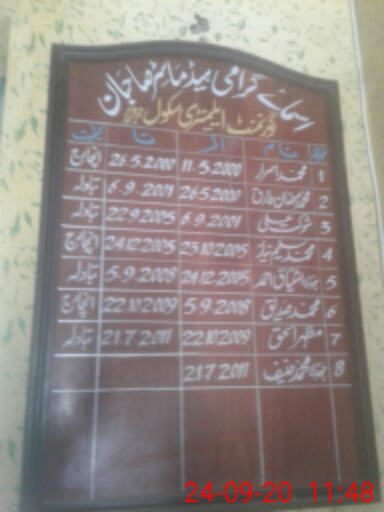 اسمائے گرامی ہیڈ ماسٹر صاحبان
گورنمنٹ ایلیمنٹری سکول
نمبر نام از تا
1 محمد اسرار 11.5.2000 26.5.2000 انچارج
2 محمد رمضان طارق 26.5.2000 6.9.2001 تبادلہ
3 شوکت علی 6.9.2001 22.9.2005 تبادلہ
4 محمد سلیم نیاز 23.10.2005 24.12.2005 انچارج
5 اشتیاق احمد 24.12.2005 5.9.2008 تبادلہ
6 محمد صدیق 5.9.2008 22.10.2009 انچارج
7 مظہر الحق 22.10.2009 21.7.2011 تبادلہ
8 محمد حنیف 21.7.2011
24-09-20 11:48